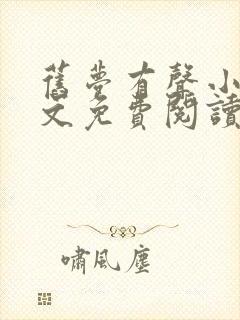 舊夢有聲小
文免費閱讀
嘯風塵